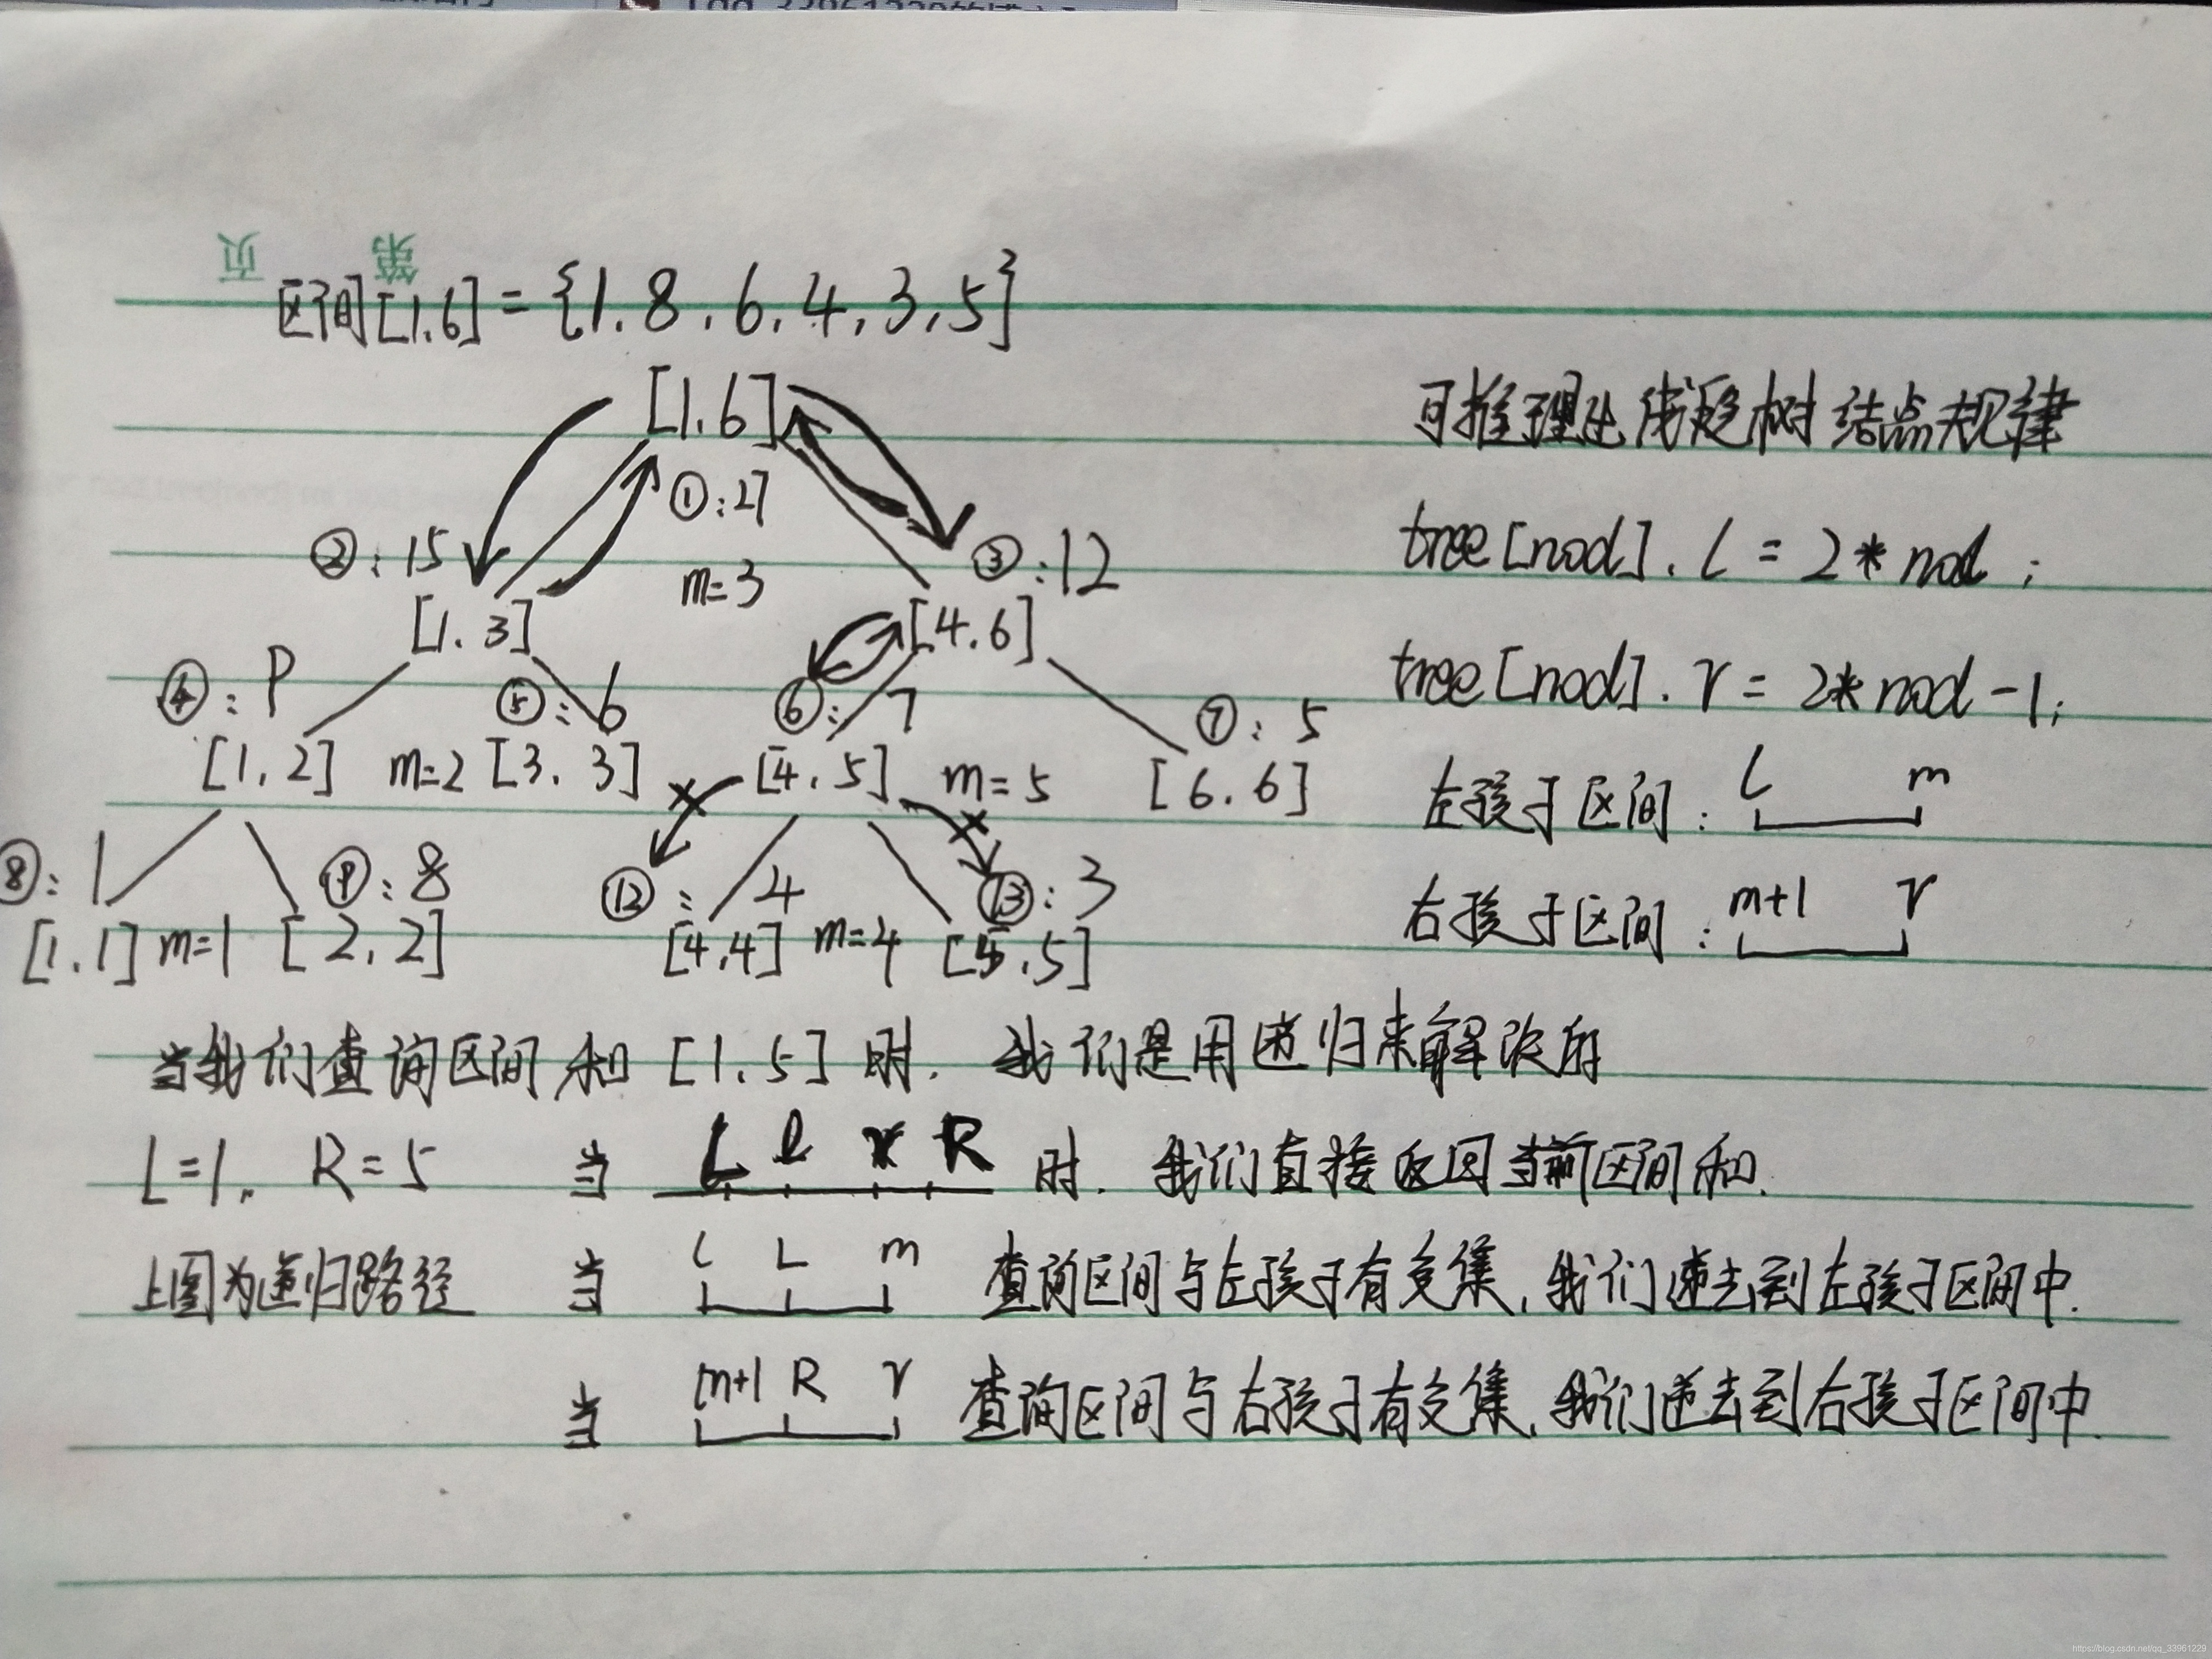 第 页
区间[1.6] = {1.8.6.4.3.5}
[1.6]
①:27
m=3
②:15
③:12
[1.3]
[4.6]
④:9
⑤:6
⑥:7
⑦:5
[1,2] m=2 [3.3]
[4,5] m=5
[6.6]
⑧:1
⑨:8
⑫:4
⑬:3
[1.1] m=1 [2,2]
[4,4] m=4 [5.5]
可推理出线段树结点规律
tree[nod].l = 2*nod;
tree[nod].r = 2*nod-1;
左孩子区间: l m
右孩子区间: m+1 r
当我们查询区间和[1.5]时.我们是用递归来解决的
L=1. R=5 当 L l r R 时.我们直接返回当前区间和.
上图为递归路径 当 l L m 查询区间与左孩子有交集,我们递去到左孩子区间中.
当 m+1 R r 查询区间与右孩子有交集,我们递去到右孩子区间中.
https://blog.csdn.net/qq_33961229